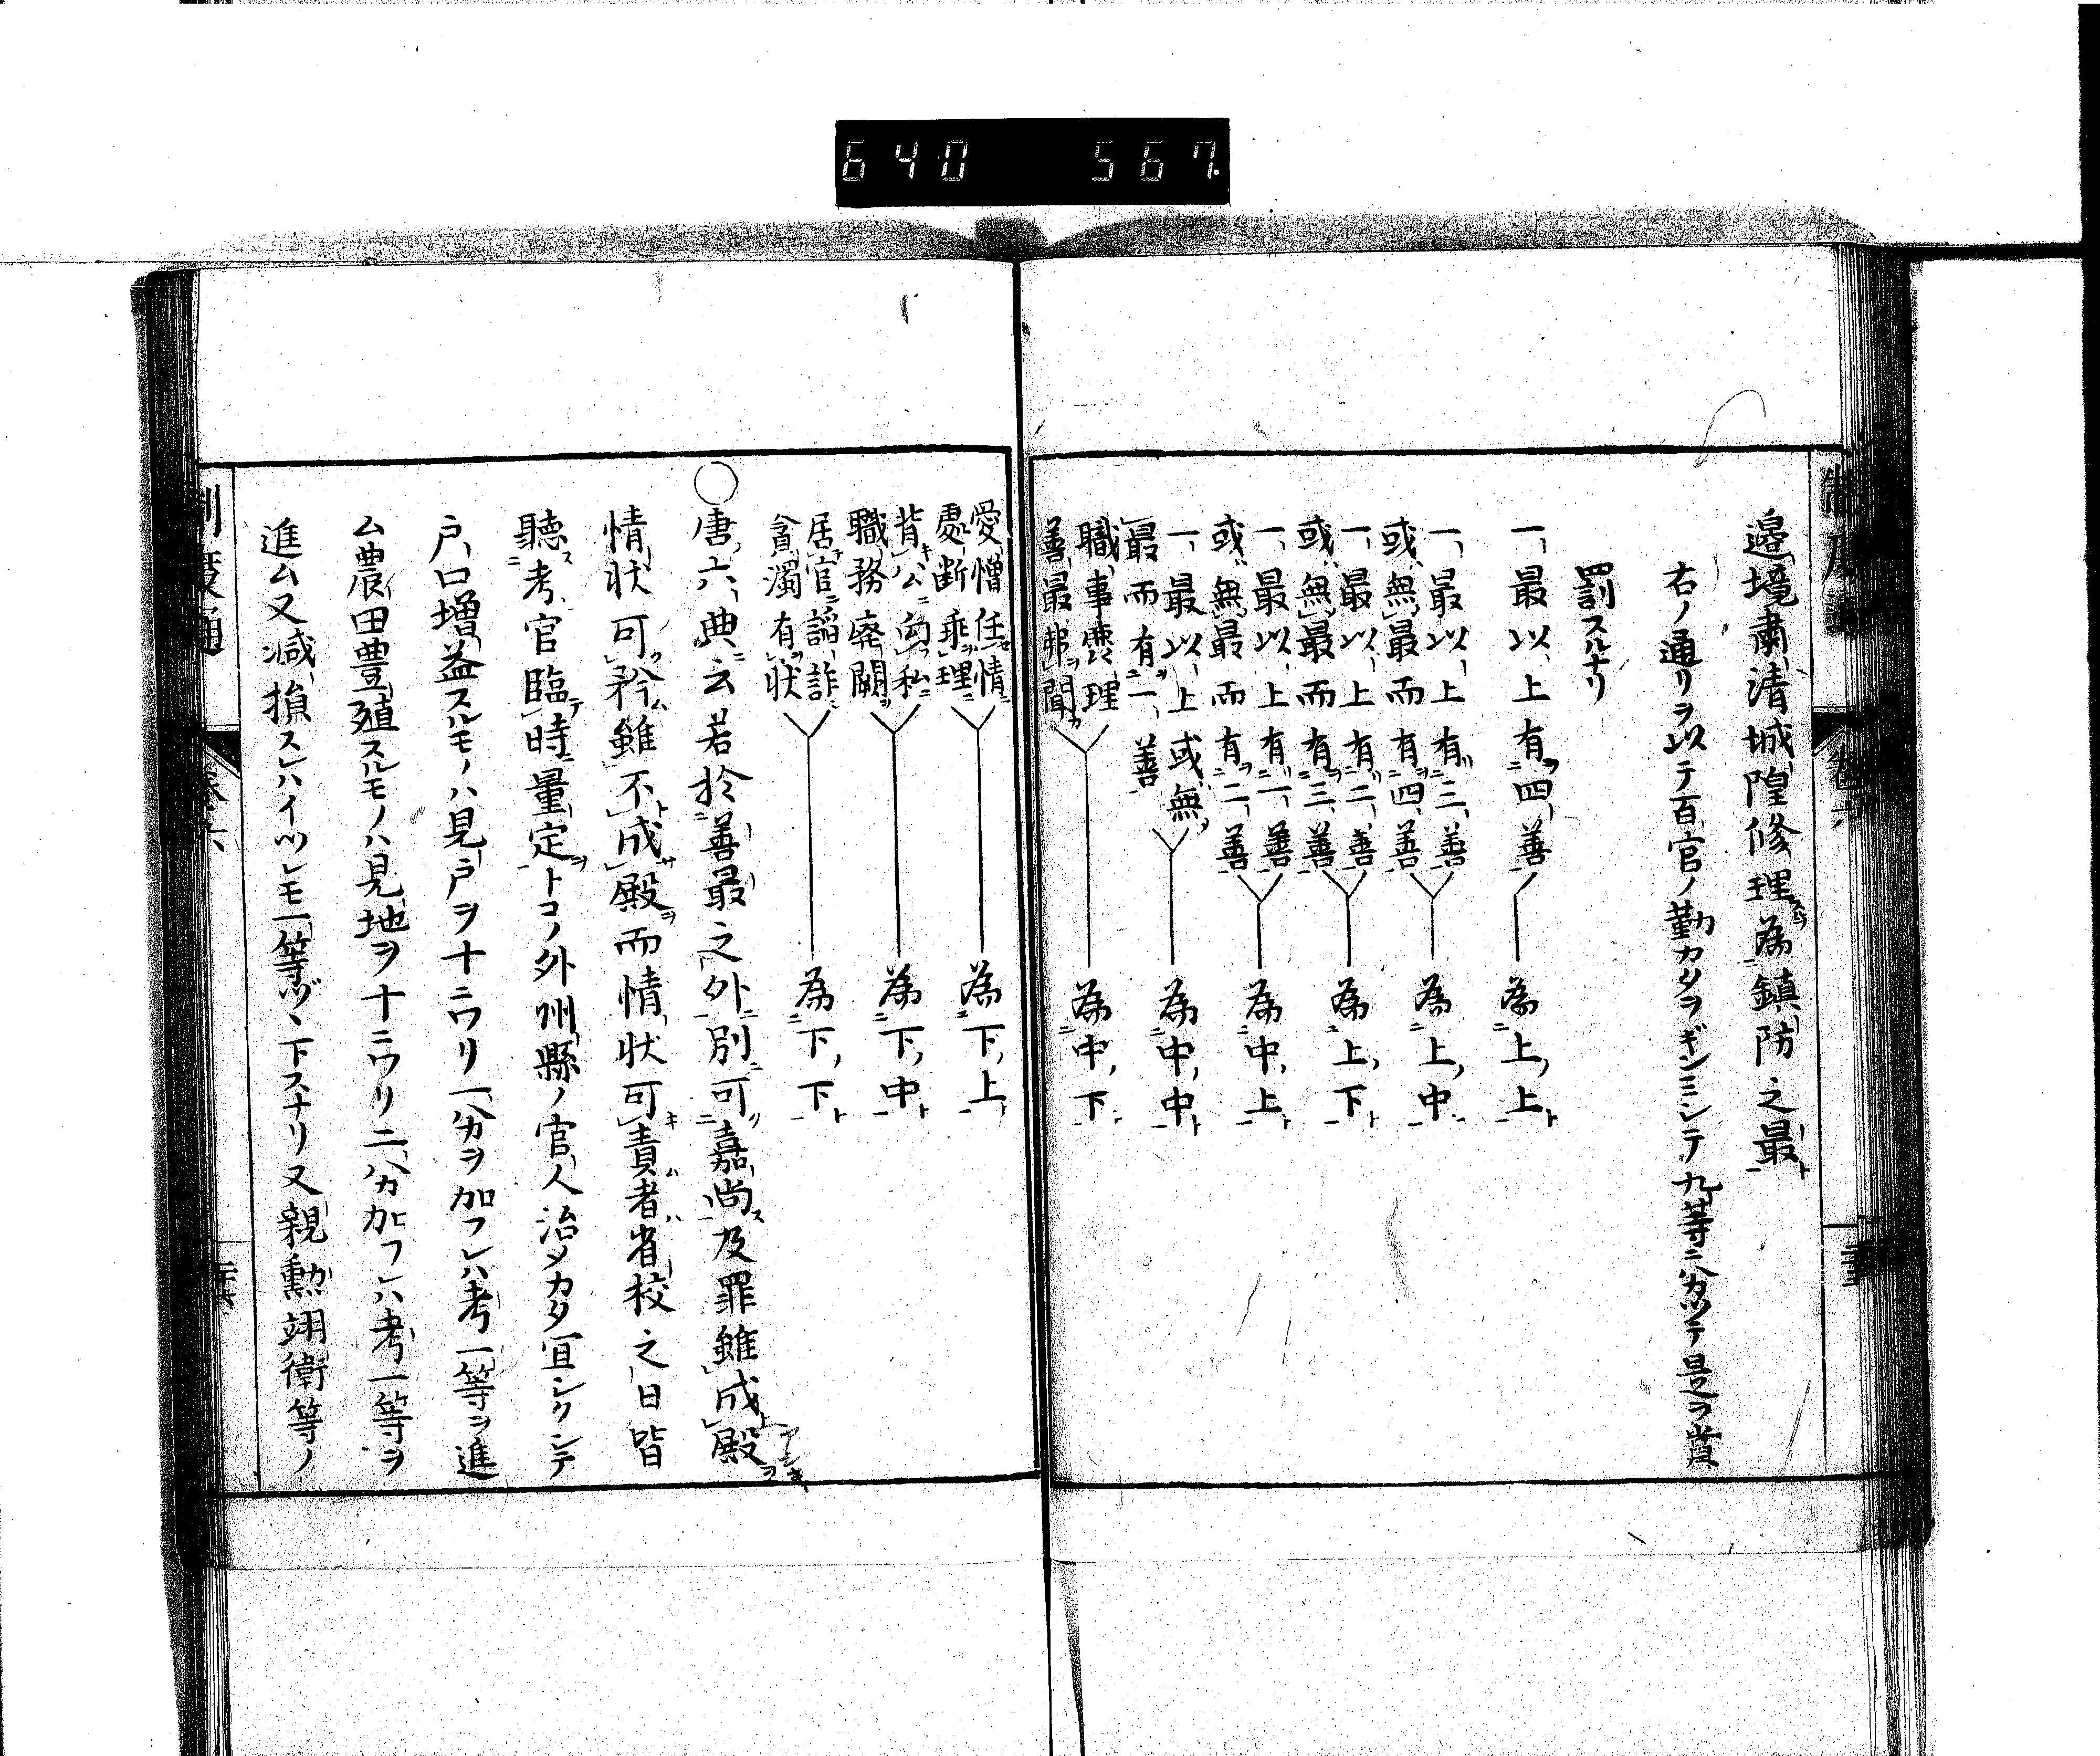 640 567.
邉境肅清城隍修理為鎮防之最
右ノ通リヲ以テ百官ノ勤カタヲギンミシテ九等ニ分ツテ是ヲ賞
罰スルナリ
一最以上有四善 為上上
一最以上有三善
或無最而有四善 為上中
一最以上有二善
或無最而有三善 為上下
一最以上有一善
或無最而有二善 為中上
一最以上或無
最而有一善 為中中
職事麤理
善最弗聞 為中下
愛憎任情
處断乖理 為下上
背公向私
職務廃闕 為下中
居官諂詐
貪濁有状 為下下
○唐六典云若於善最之外別可嘉尚及罪雖成殿
情状可矜雖不成殿而情状可責者省校之日皆
聽考官臨時量定トコノ外州縣ノ官人治メカタ宜シクシテ
戸口増益スルモノハ見戸ヲ十ニワリ一分ヲ加フレハ考一等ヲ進
ム農田豊殖スルモノハ見地ヲ十ニワリ二分カ加フレハ考一等ヲ
進ム又減損スレハイツレモ一等ヅヽ下スナリ又親勳翊衛等ノ
制度通
巻六